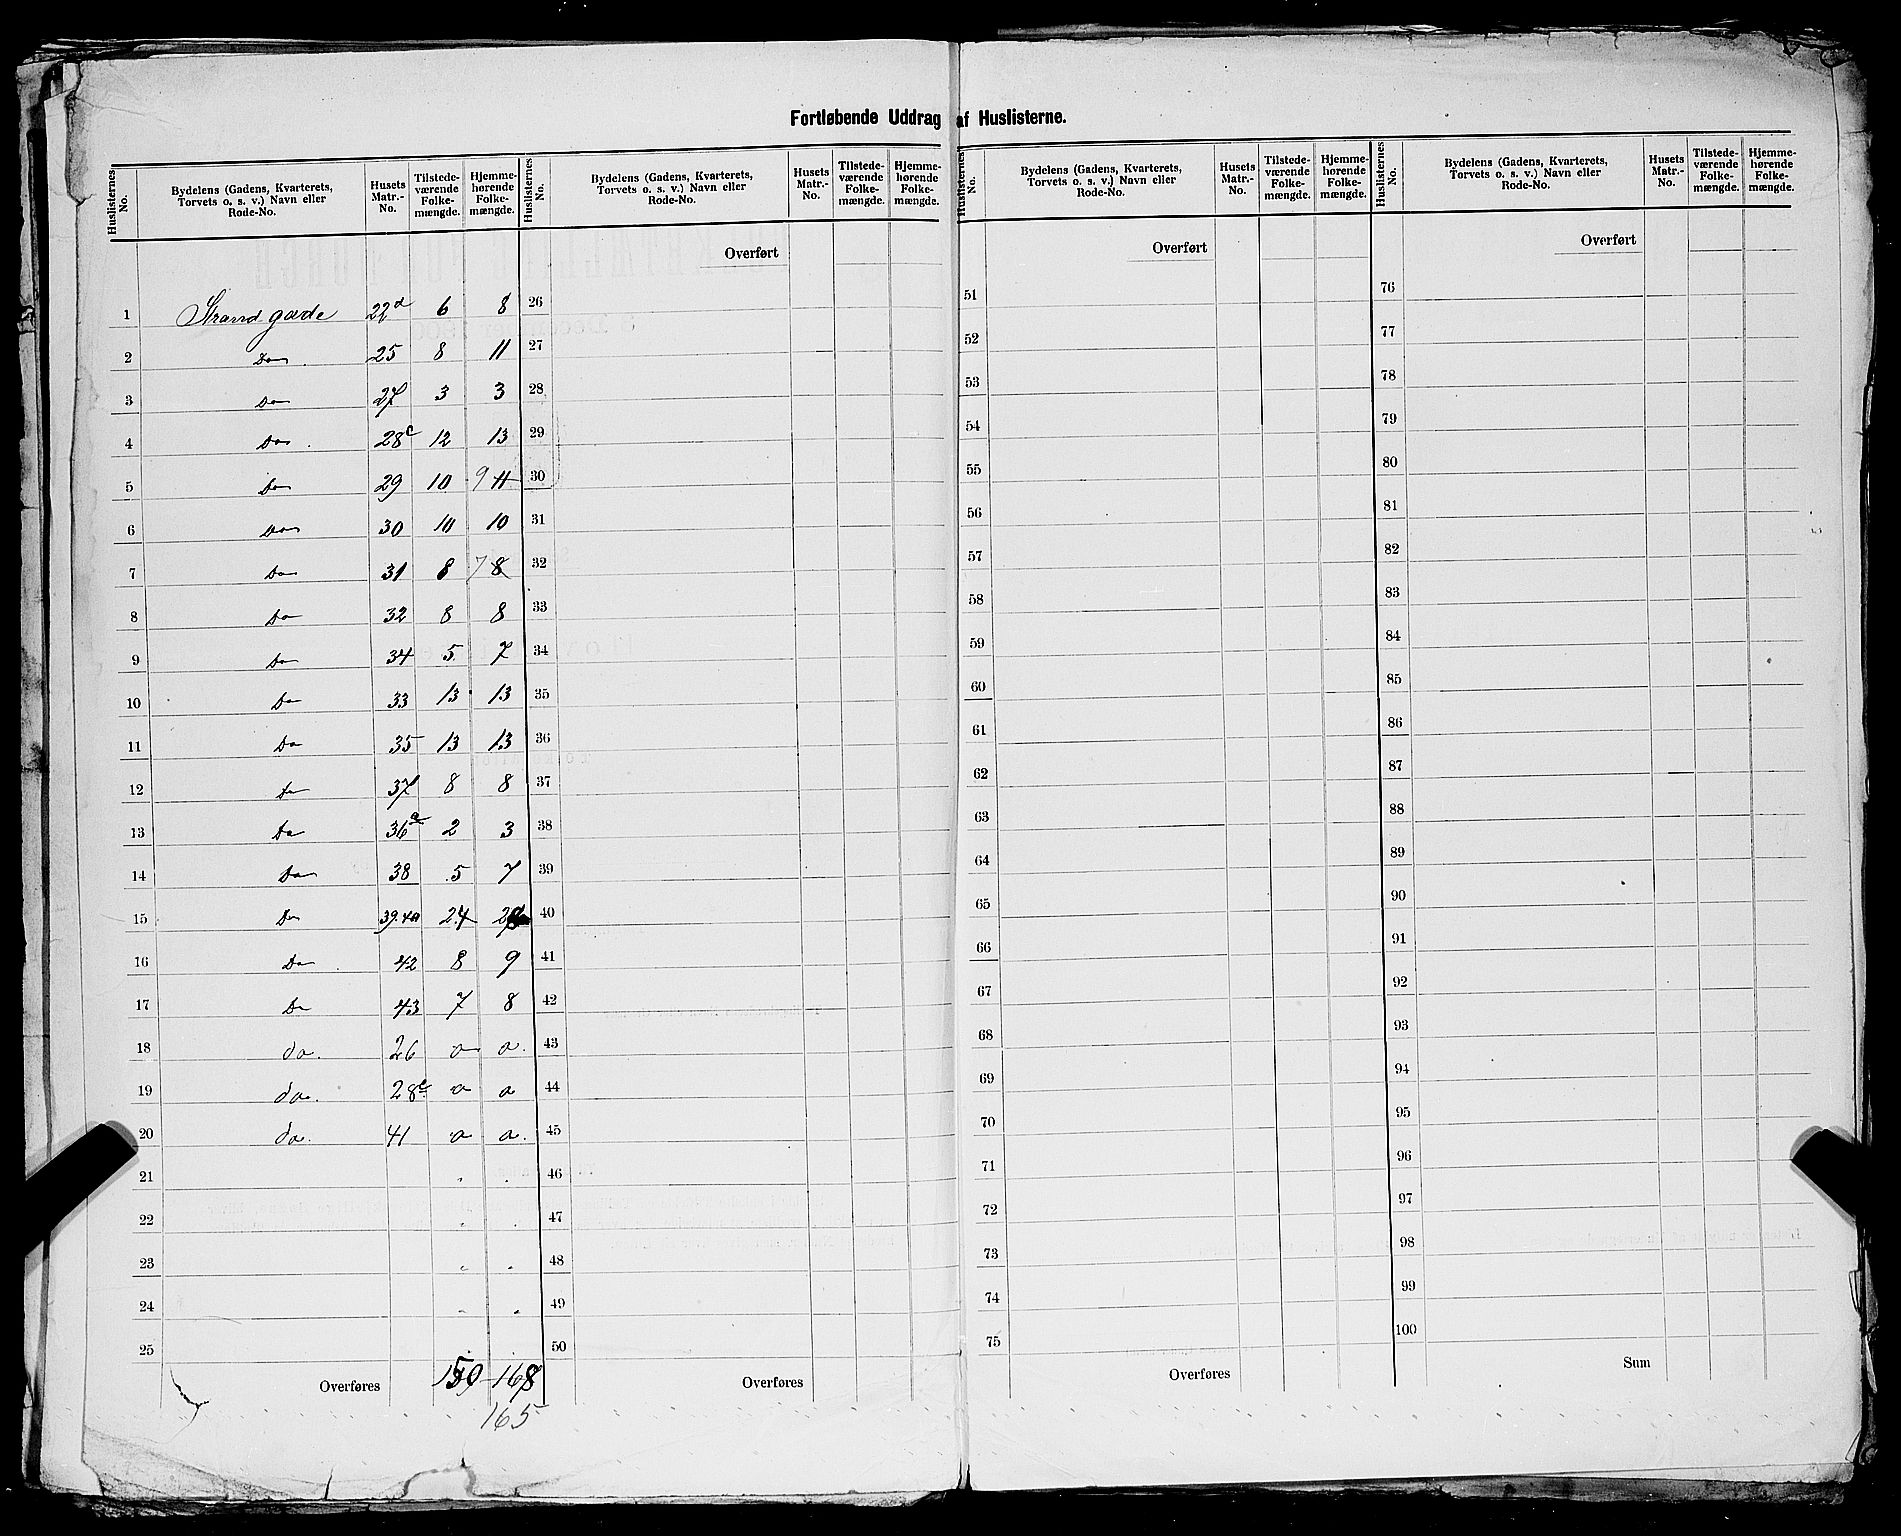 Fortløbende Uddrag af Huslisterne.
Huslisternes No. | Bydelens (Gadens, Kvarterets, Torvets o. s. v.) Navn eller Rode-No. | Husets Matr.-No. | Tilstedeværende Folkemængde. | Hjemmehørende Folkemængde.
1 Strandgade 22d 6 8
2 Do 25 8 11
3 Do 27 3 3
4 Do 28c 12 13
5 Do 29 10 9 11
6 Do 30 10 10
7 Do 31 8 7 8
8 Do 32 8 8
9 Do 34 5 7
10 Do 33 13 13
11 Do 35 13 13
12 Do 37 8 8
13 Do 36a 2 3
14 Do 38 5 7
15 Do 39.40 24
16 Do 42 8 9
17 Do 43 7 8
18 do. 26 o o.
19 do. 28e o o
20 do. 41 o o.
21
22
23
24
25
Overføres 150 168
165
Huslisternes No. | Bydelens (Gadens, Kvarterets, Torvets o. s. v.) Navn eller Rode-No. | Husets Matr.-No. | Tilstedeværende Folkemængde. | Hjemmehørende Folkemængde.
Overført
26
27
28
29
30
31
32
33
34
35
36
37
38
39
40
41
42
43
44
45
46
47
48
49
50
Overføres
Huslisternes No. | Bydelens (Gadens, Kvarterets, Torvets o. s. v.) Navn eller Rode-No. | Husets Matr.-No. | Tilstedeværende Folkemængde. | Hjemmehørende Folkemængde.
Overført
51
52
53
54
55
56
57
58
59
60
61
62
63
64
65
66
67
68
69
70
71
72
73
74
75
Overføres
Huslisternes No. | Bydelens (Gadens, Kvarterets, Torvets o. s. v.) Navn eller Rode-No. | Husets Matr.-No. | Tilstedeværende Folkemængde. | Hjemmehørende Folkemængde.
Overført
76
77
78
79
80
81
82
83
84
85
86
87
88
89
90
91
92
93
94
95
96
97
98
99
100
Sum